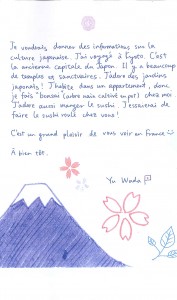 Je voudrais donner des informations sur la
culture japonaise. J'ai voyagé à Kyoto. C'est
la ancienne capitale du Japon. Il y a beaucoup
de temples et sanctuaires. J'adore des jardins
japonais! J'habite dans un appartement, donc
je fais "bonsai (arbre nain cultivé en pot) chez moi.
J'adore aussi manger le sushi. J'essaierai de
faire le sushi roulé chez vous!
C'est un grand plaisir de vous voir en France
À bien tôt.
Yu Wada